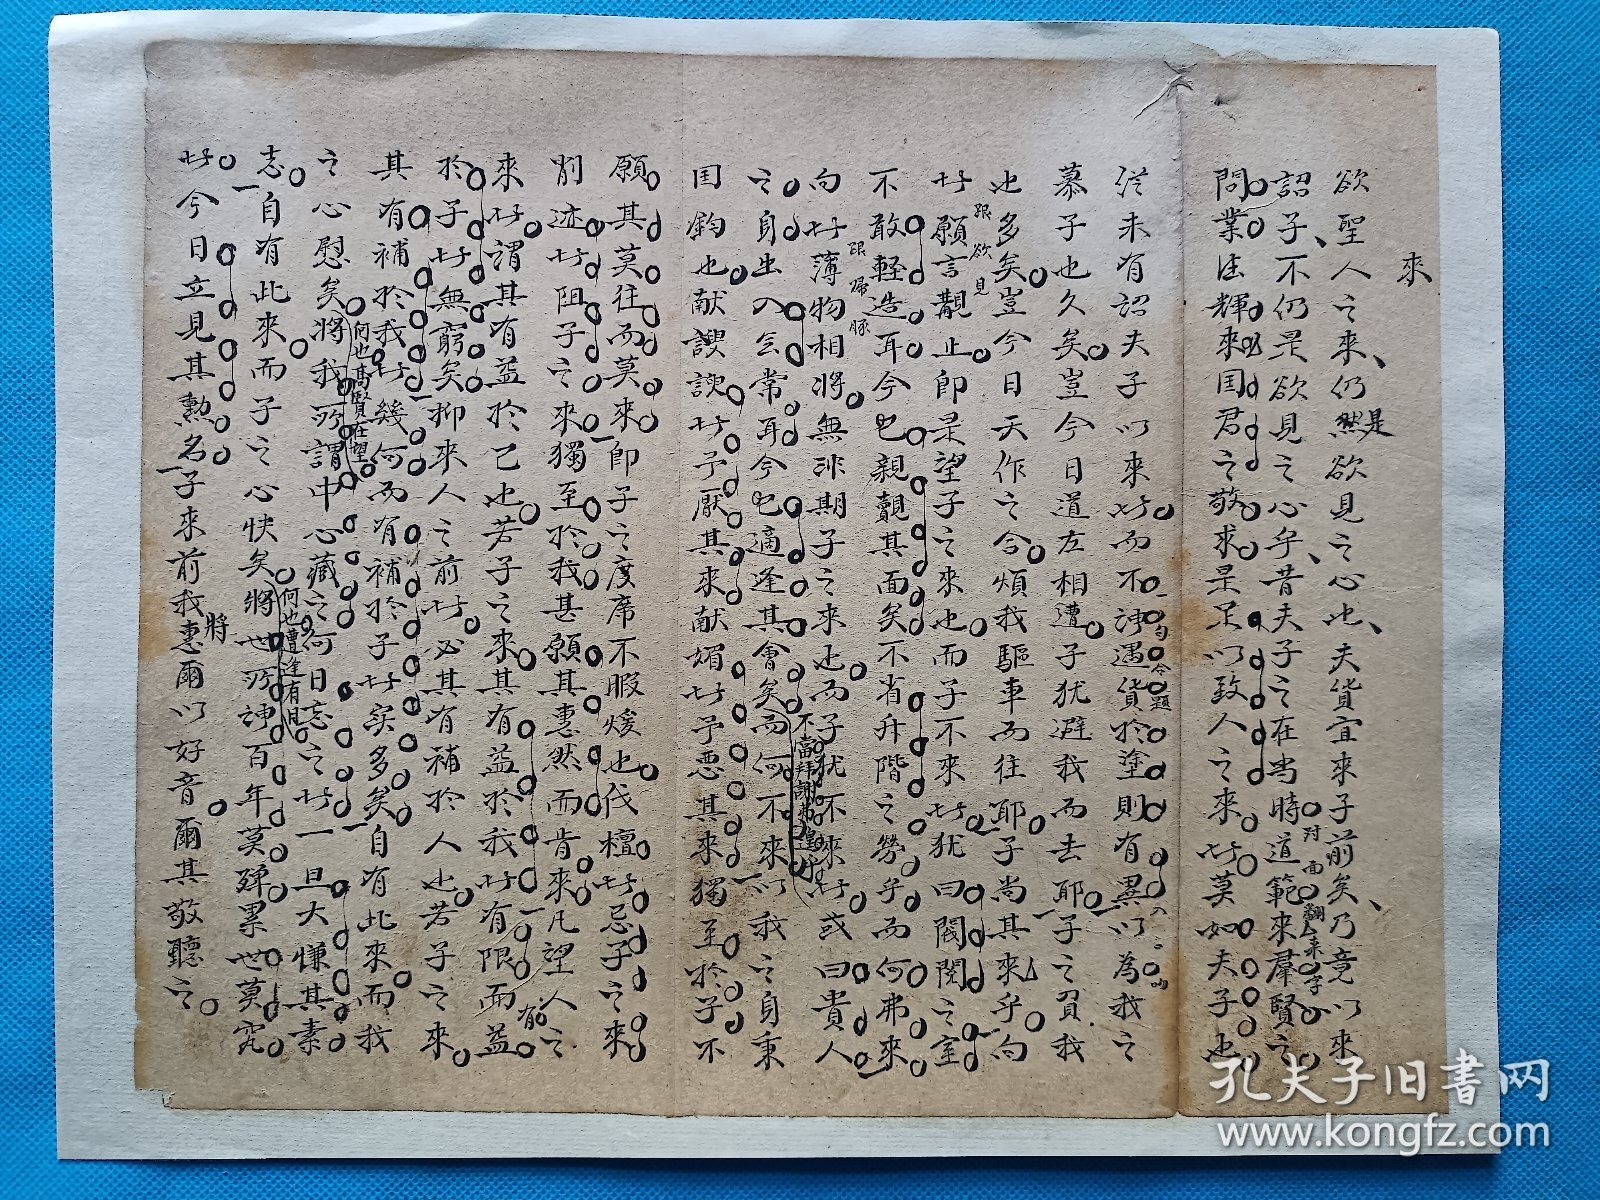 來
欲聖人之來仍然是欲見之心也夫貨宜來子前矣乃竟以來
詔子不仍是欲見之心乎昔夫子之在當時道範來羣賢之
對面翻來字
問業德輝來國君之敬求是足以致人之來者莫如夫子也
從未有詔夫子以來者而不謂遇貨於塗則有異以為我之
一句合題
慕子也久矣豈今日道左相遭子猶避我而去耶子之負我
也多矣豈今日天作之合煩我驅車而往耶子尚其來乎向
跟欲見
者願言覯止即是望子之來也而子不來者猶曰閥閱之室
不敢輕造耳今也親覿其面矣不省升階之勞乎而何弗來
跟歸豚
向者薄物相將無非期子之來也而子猶不來者或曰貴人
之自出入無常耳今也適逢其會矣而何不來以我之身秉
不當拜謝弗遑乎
國鈞也献諛者予厭其來献媚者予惡其來獨至於子不
願其莫往而莫來即子之度席不暇煖也伐檀者忌子之來
削迹者阻子之來獨至於我甚願其惠然而肯來凡望人之
來者謂其有益於己也若子之來其有益於我者有限而益
有
於子者無窮矣抑來人之前者必其有補於人也若子之來
其有補於我者幾何而有補於子者寔多矣自有此來而我
之心慰矣將我所謂中心藏之何日忘之者一旦大慊其素
何也高賢在望
志自有此來而子之心快矣將世所謂百年莫殫累世莫究
何也遭逢有具
者今日立見其勲名子來前我將惠爾以好音爾其敬聽之
孔夫子旧書网
www.kongfz.com